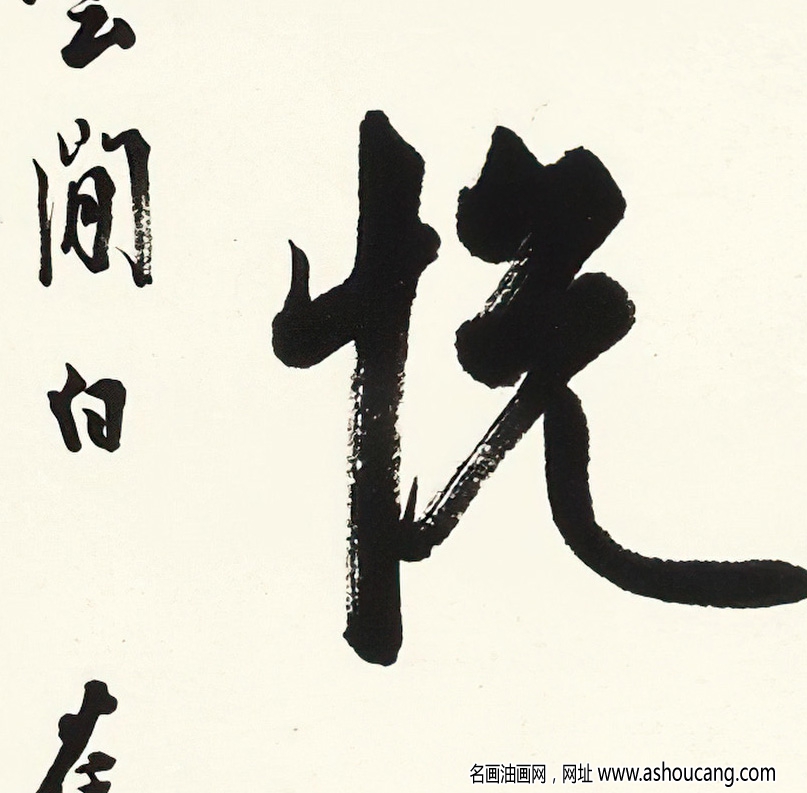 悦
雲閒白
名画油画网，网址 www.ashoucang.com